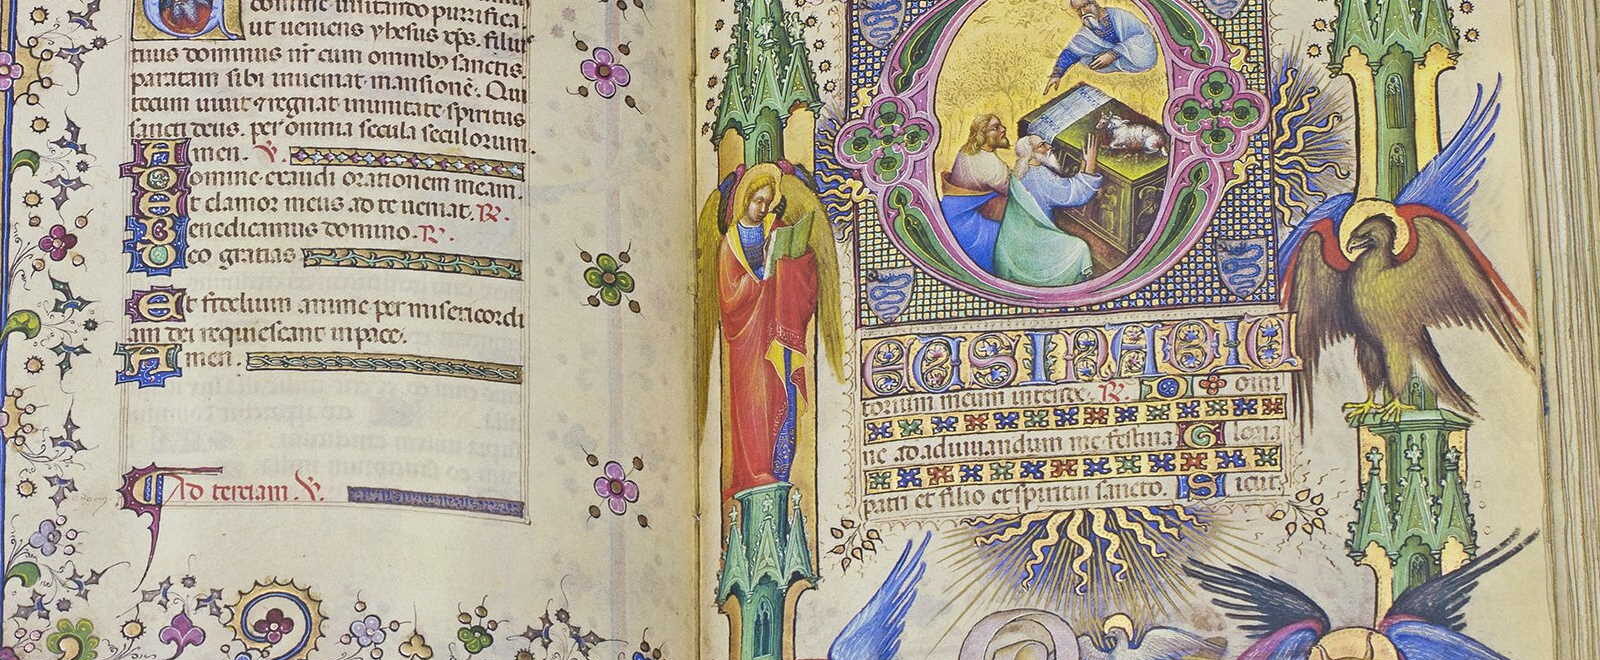 domine imitando purifica
ut veniens yhesus xps. filius
tuus dominus nr cum omnibus sanctis.
paratam sibi inveniat mansionē. Qui
tecum vivit et regnat in unitate spiritus
sancti deus. per omnia secula seculorum.
Amen. V.
Domine exaudi orationem meam.
Et clamor meus ad te veniat. R.
Benedicamus domino. R.
Deo gratias
Et fidelium anime per misericordi
am dei requiescant in pace.
Amen.
Ad terciam. V.
EUS IN ADIU
torium meum intende. R. Domi
ne ad adiuvandum me festina Gloria
patri et filio et spiritui sancto. Sicut